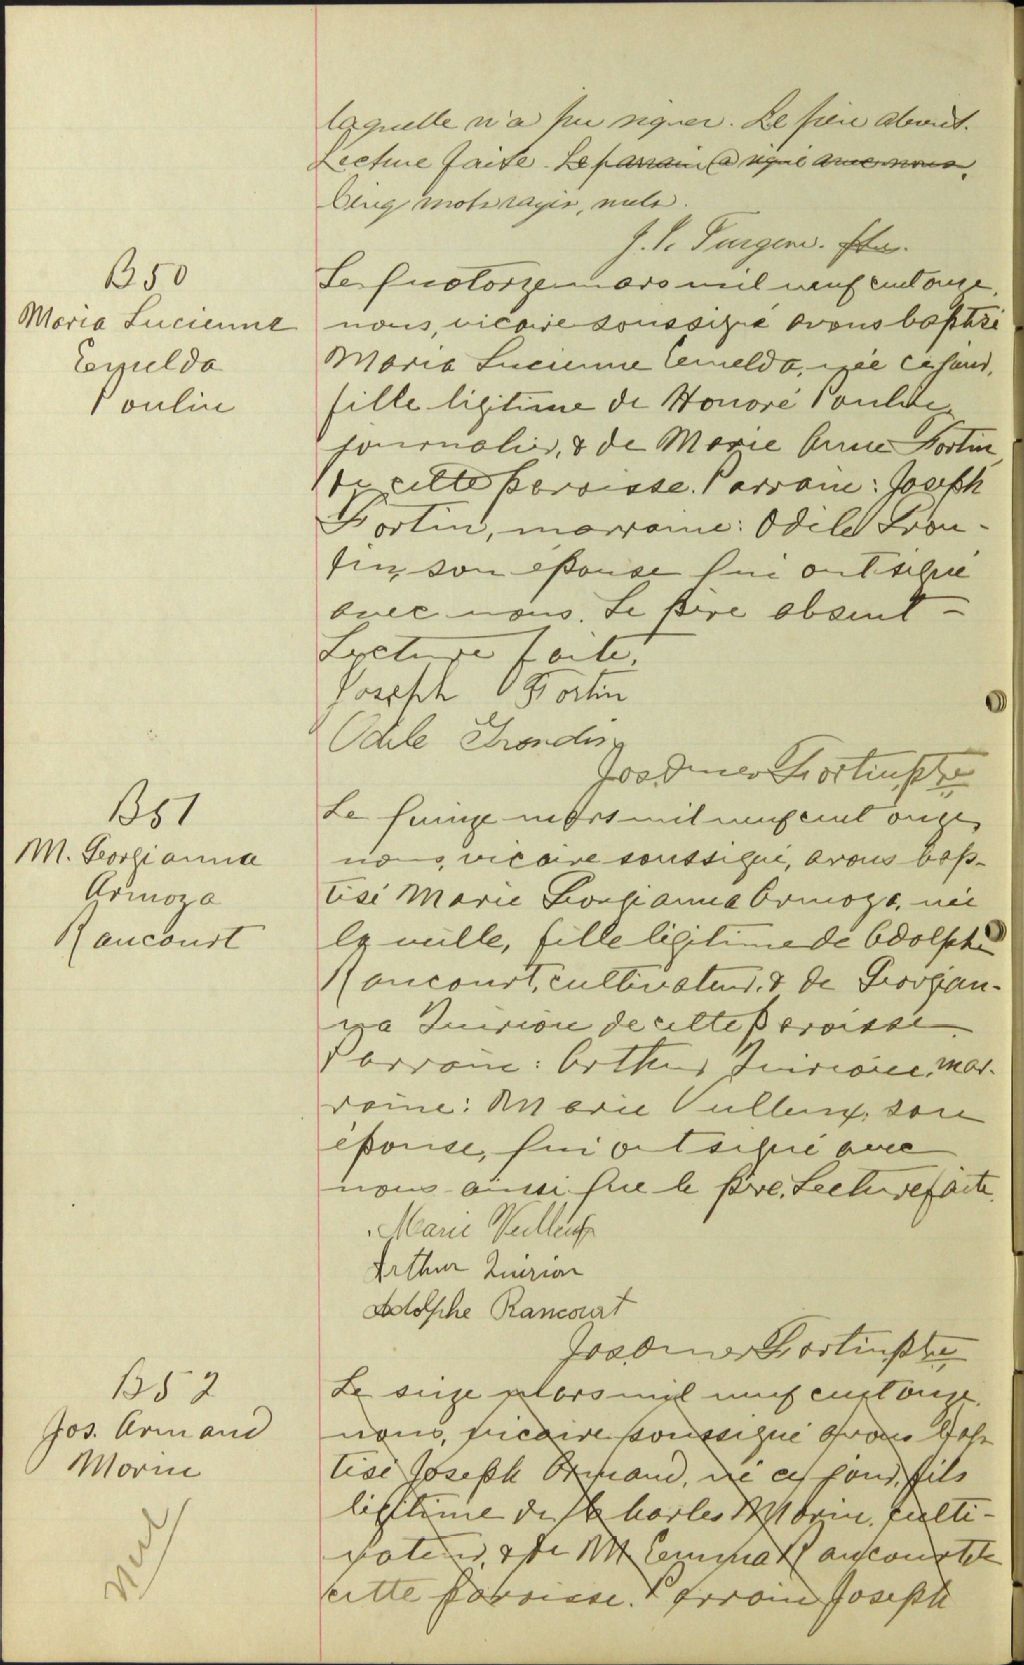 laquelle n'a pu signer. Le père absent.
Lecture faite. Le parrain a signé avec nous.
Cinq mots rayés, nuls.
J. Turgeon. ptre.
B 50
Maria Lucienne
Emelda
Poulin
Le quatorze mars mil neuf cent onze,
nous, vicaire soussigné avons baptisé
Maria Lucienne Emelda, née ce jour,
fille légitime de Honoré Poulin,
journalier, & de Marie Anne Fortin,
de cette paroisse. Parrain: Joseph
Fortin, marraine: Odile Gron-
din, son épouse qui ont signé
avec nous. Le père absent -
Lecture faite.
Joseph Fortin
Odile Grondin
Jos. Omer Fortin, ptre
B 51
M. Georgianna
Armoza
Rancourt
Le quinze mars mil neuf cent onze,
nous, vicaire soussigné, avons bap-
tisé Marie Georgianna Armoza, née
la veille, fille légitime de Adolphe
Rancourt, cultivateur, & de Georgian-
na Quirion de cette paroisse
Parrain: Arthur Quirion, mar-
raine: Marie Veilleux, son
épouse, qui ont signé avec
nous ainsi que le père. Lecture faite.
Marie Veilleux
Arthur Quirion
Adolphe Rancourt
Jos. Omer Fortin, ptre
B 52
Jos. Armand
Morin
nul
Le seize mars mil neuf cent onze,
nous, vicaire soussigné avons bap-
tisé Joseph Armand, né ce jour, fils
légitime de Charles Morin, culti-
vateur, & de M. Emma Rancourt de
cette paroisse. Parrain Joseph